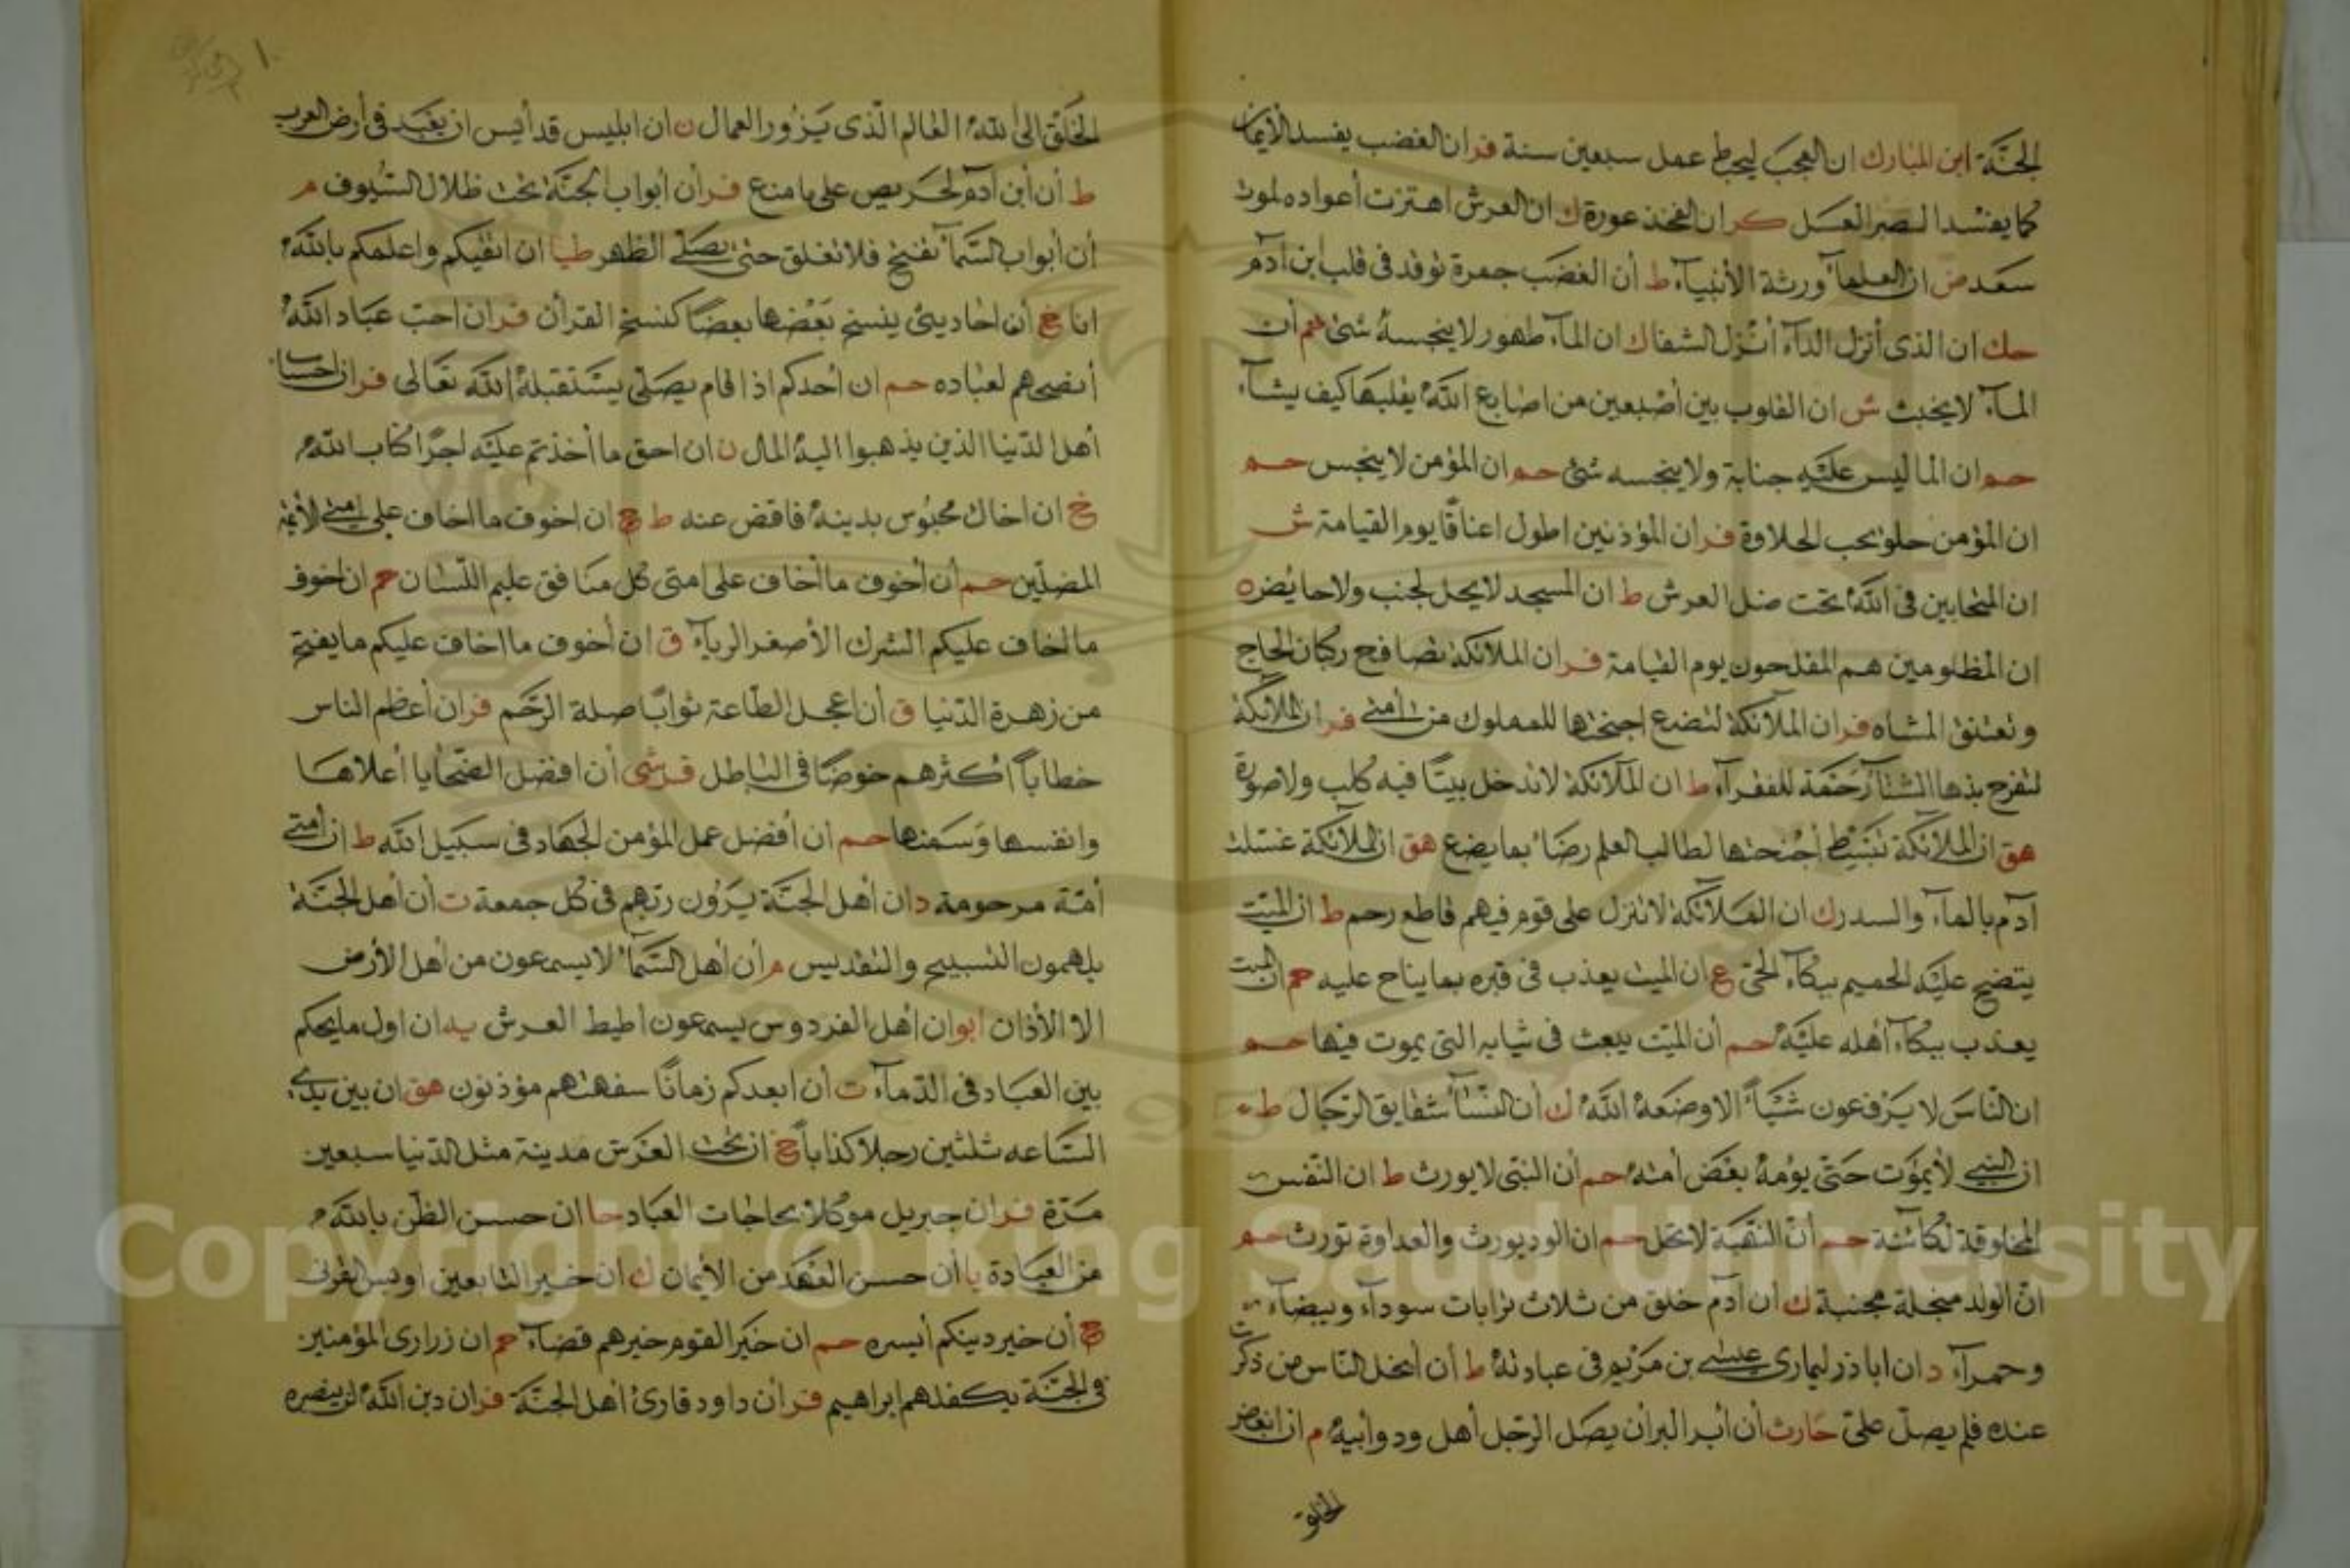 الجنّة ابن المبارك ان العجب ليحبط عمل سبعين سنة فر ان الغضب يفسد الأيمان
كما يفسد الصبر العسل كر ان الفخذ عورة ك ان العرش اهتزت أعواده لموت
سعد ض ان العلماء ورثة الأنبياء ط أن الغضب جمرة توقد في قلب ابن آدم
حك ان الذى أنزل الداء أنزل الشفا ك ان الماء طهور لا ينجسه شئ هم أن
الماء لا يخبث ش ان القلوب بين أصبعين من اصابع الله يقلبها كيف يشاء
حم ان الما ليس عليه جنابة ولا ينجسه شئ حم ان المؤمن لا ينجس حم
ان المؤمن حلو يحب الحلاوة فر ان المؤذنين اطول اعناقًا يوم القيامة ش
ان المتحابين في الله تحت ضل العرش ط ان المسجد لا يحل لجنب ولا حايُض ه
ان المظلومين هم المفلحون يوم القيامة فر ان الملائكة تصافح ركبان الحاج
وتعتنق المشاه فر ان الملائكة لتضع اجنحتها للمملوك من أمتي فر ان الملائكة
لتفرح بذهاب الشتاء رَحمَة للفقراء ط ان الملآئكة لا تدخل بيتًا فيه كلب ولا صورة
هق ان الملائكة تبسط أجنحتها لطالب العلم رضاء بما يضع هق ان الملائكة غسلت
آدم بالماء والسدر ك ان الملائكة لا تنزل على قوم فيهم قاطع رحم ط ان الميّت
ينضح عليه الحميم ببكاء الحيّ ع ان الميت يعذب في قبره بما يناح عليه حم ان الميت
يعذب ببكاء أهله عليه حم أن الميّت يبعث في ثيابه التي يموت فيها حم
ان الناسَ لا يَرفعون شَيئاً الا وضَعهُ الله ك أن النسآء شقايق الرّجال ط
ان النبي لا يموت حَتّى يؤمهُ بعَض أمته حم أن النبّي لا يورث ط ان النّفس
المخلوقة لكائنة حم أنّ النهبَة لا تحل حم ان الود يورث والعداوة تورث حم
انّ الولد مبخلة مجنبة ك أن آدم خلق من ثلاث ترابات سودآء وبيضآء
وحمرآء د ان اباذر ليبارى عيسى بن مَرْيم في عبادتهُ ط أن أبخل النّاس من ذكرت
عنده فلم يصلّ عليّ حَارث أن أبر البر أن يصَل الرّجل أهل ود وأبيهُ م ان ابغض
الخلق
الخَلق الى الله العالم الّذى يَزور العمال ن ان ابليس قد أيس ان يعبَد في أرض العرب
ط أن أبن آدم لحَريص على ما منع فر أن أبواب الجنّة تحت ظلال السُّيوف م
أن أبواب السّمآء تفتح فلا تغلق حتى يصَلى الظهر طيا ان اتقيكم واعلمكم بالله
انا خ أن احاديثى ينسخ بَعْضها بعضًا كنسخ القرأن فر ان احبّ عبَاد الله
أنصحهم لعباده حم ان أحدكم اذا قام يصَلّى يسْتقبلهُ الله تعَالى فر ان احساب
أهل الدّنيا الذين يذهبوا اليه المال ن ان احق ما أخذتم عليه اجرًا كتاب الله
خ ان اخاك محبُوس بدينهُ فاقض عنه ط ح ان اخوف ما اخاف على امتي الأئمة
المضلّين حم أن أخوف ما أخاف على امتى كل منافق عليم اللّسان حم ان اخوف
ما اخاف عليكم الشرك الأصغر الرياء ق ان أخوف ما اخاف عليكم ما يفتح
من زهرة الدّنيا ق أن اعجل الطّاعة ثوابًا صلة الرّحَم فر ان أعظم الناس
خطاياً اكثرهم خوضًا في الباطل فر شى أن افضل الضّحايا أعلاها
وانفسها وَسمنها حم ان أفضل عمل المؤمن الجهاد في سبَيل الله ط ان أمتي
أمّة مرحومة د ان أهل الجنّة يَرَون ربّهم في كل جمعة ت أن أهل الجَنّة
يلهمون التسبيح والتقديس م أن أهل السّمآء لا يسمعون من أهل الأرض
الا الأذان ابو ان أهل الفردوس يسمعون اطيط العرش يه ان اول ما يحكم
بين العبَاد في الدّمآء ت أن ابعدكم زمانًا سفهتهم مؤذنون هق ان بين يدي
السّاعه ثلثين رجلا كذاباً ح ان تحت العَرش مدينة مثل الدّنيا سبعين
مَرّة فر ان جبريل موكلاً بحاجات العبَاد حا ان حسن الظّن بالله
من العبَادة با أن حسن العَهد من الأيمان ك ان خير التابعين اويس القرنى
ح أن خير دينكم أيسره حم ان خَير القوم خيرهم قضآء حم ان زرارى المؤمنين
في الجنّة يكفلهم ابراهيم فر أن داود قارئ أهل الجنّة فر ان دين الله لن ينصره
Copyright © King Saud University